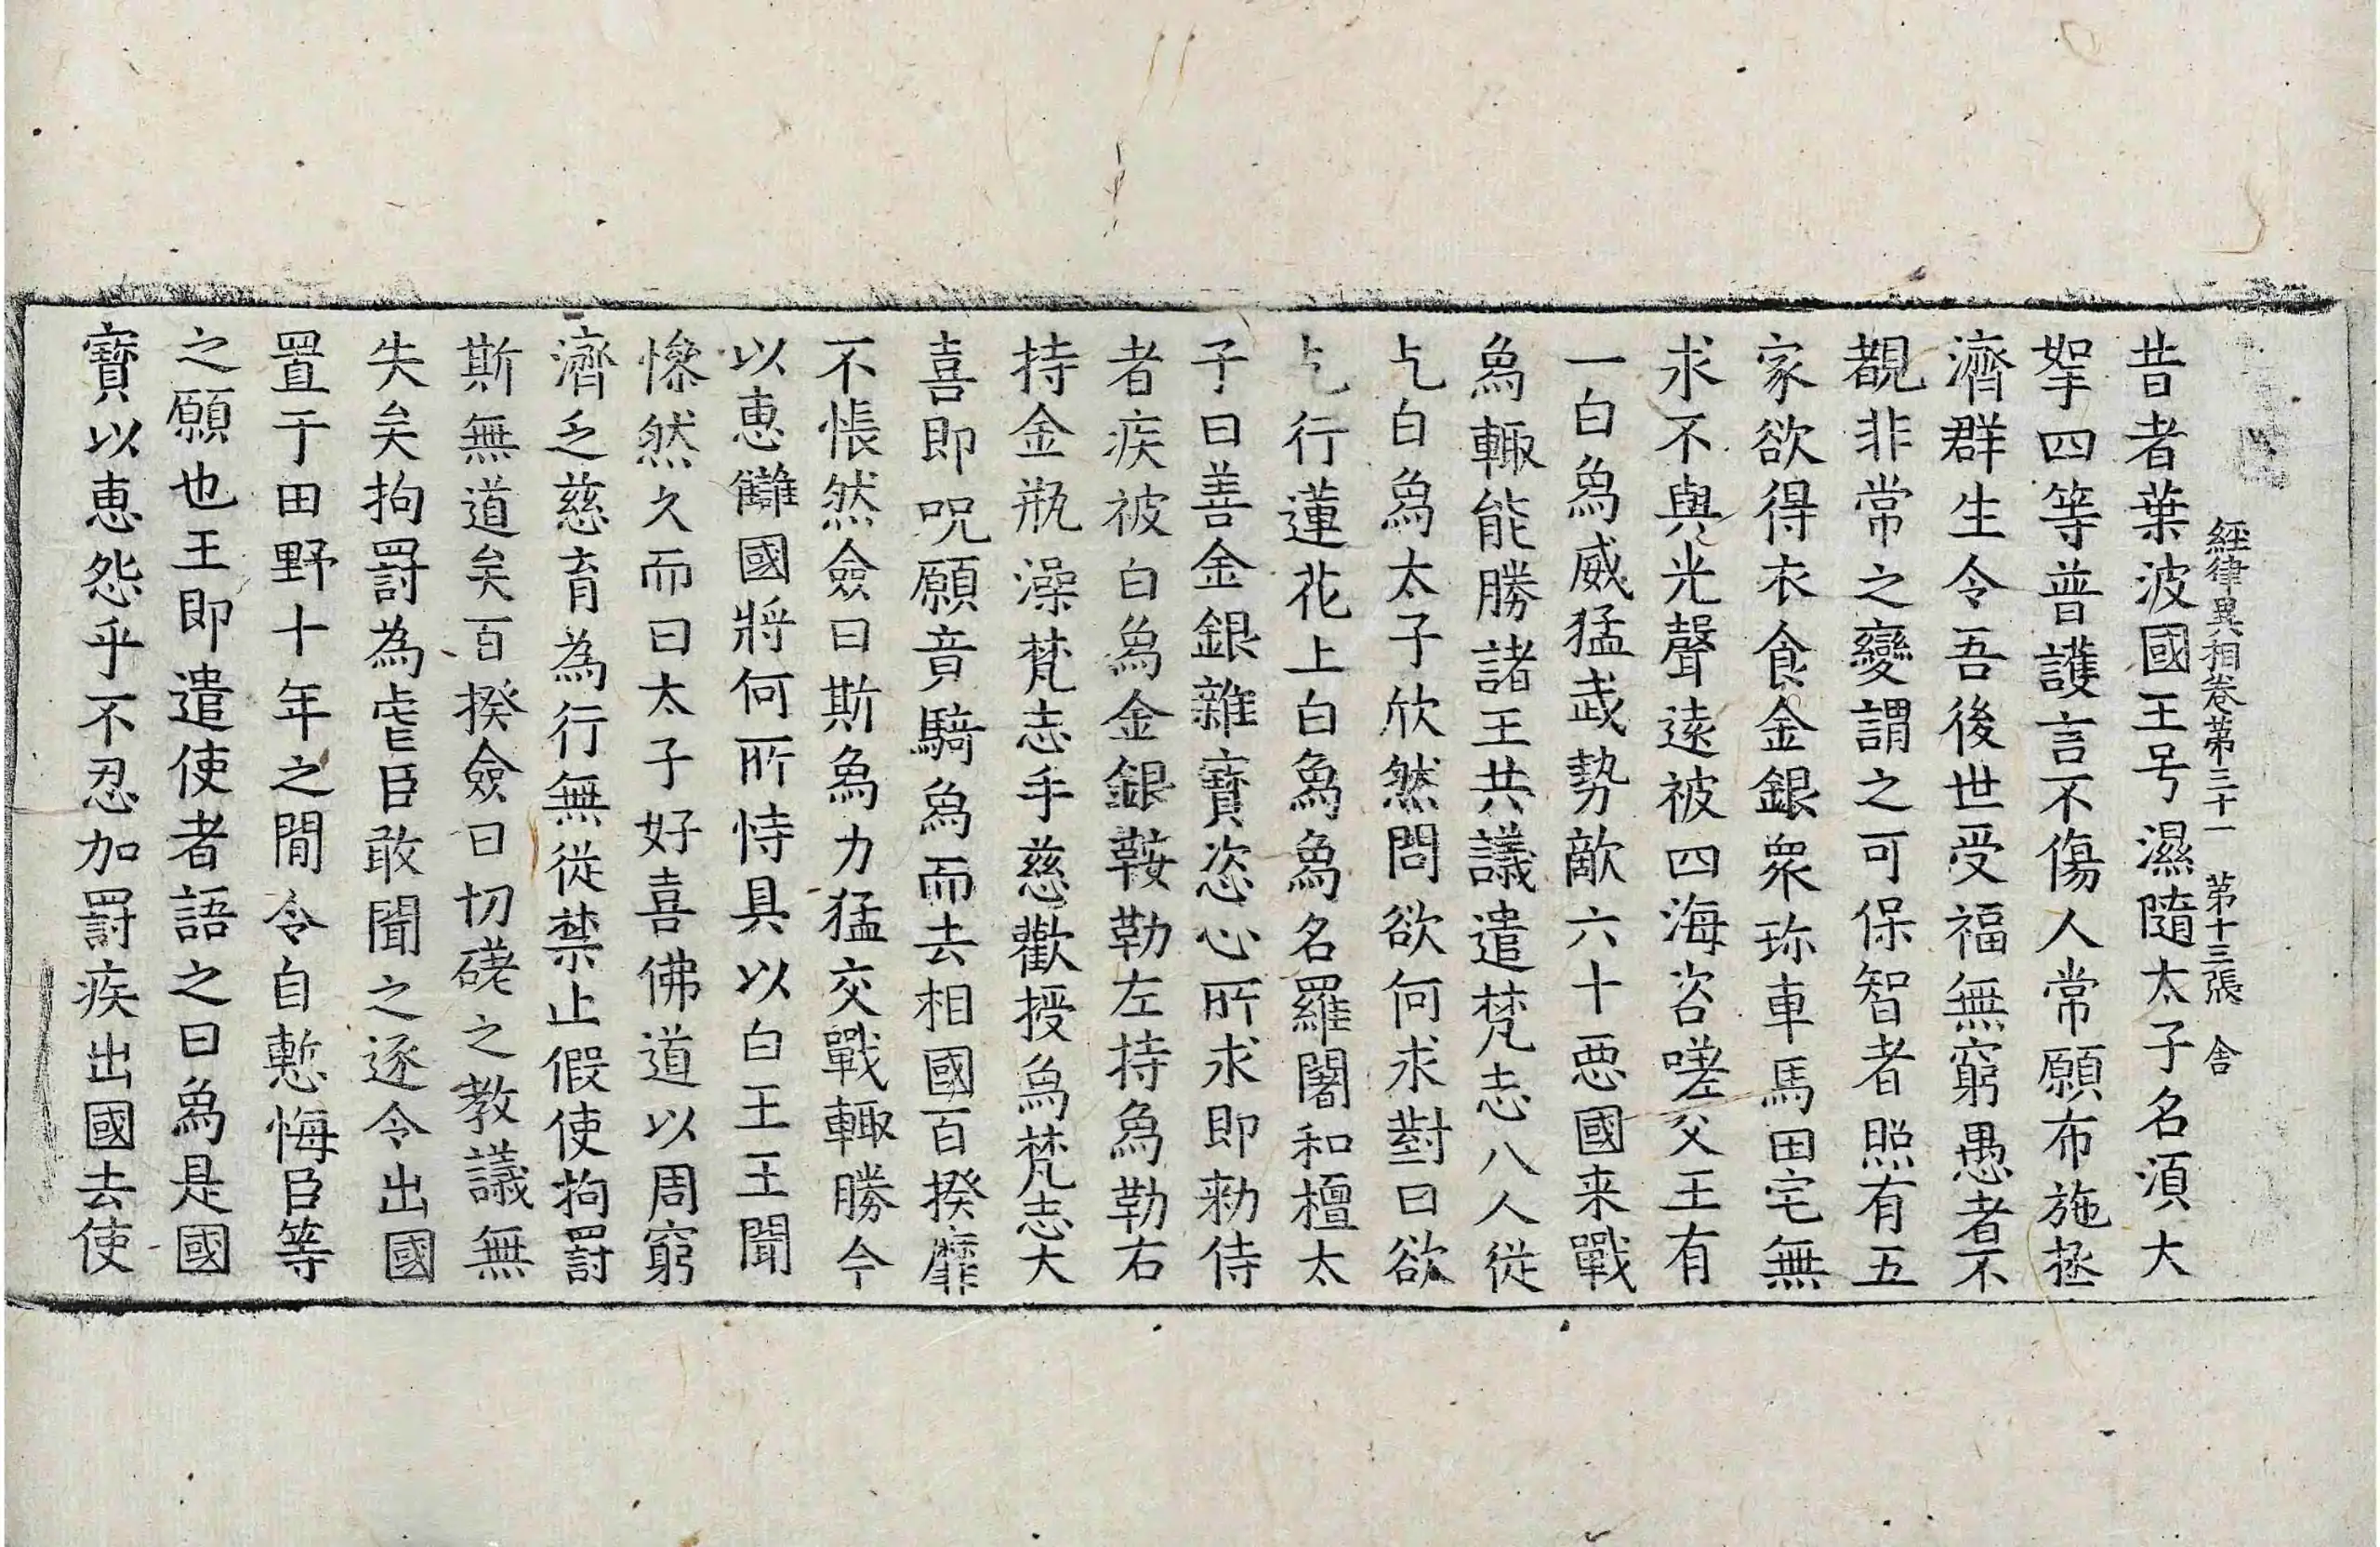 經律異相卷第三十一 第十三張 舍
昔者葉波國王号濕隨太子名須大
拏四等普護言不傷人常願布施拯
濟群生令吾後世受福無窮愚者不
覩非常之變謂之可保智者照有五
家欲得衣食金銀衆珎車馬田宅無
求不與光聲遠被四海咨嗟父王有
一白象威猛武勢敵六十惡國来戰
象輙能勝諸王共議遣梵志八人從
乞白象太子欣然問欲何求對曰欲
乞行蓮花上白象象名羅闍和檀太
子曰善金銀雜寶恣心所求即勑侍
者疾被白象金銀鞍勒左持象勒右
持金瓶澡梵志手慈歡授象梵志大
喜即呪願竟騎象而去相國百揆靡
不悵然僉曰斯象力猛交戰輙勝今
以惠讎國將何所恃具以白王王聞
慘然久而曰太子好喜佛道以周窮
濟乏慈育為行無從禁止假使拘罸
斯無道矣百揆僉曰切磋之教議無
失矣拘罸為虐臣敢聞之逐令出國
置于田野十年之間令自慙悔臣等
之願也王即遣使者語之曰象是國
寶以惠怨乎不忍加罸疾出國去使